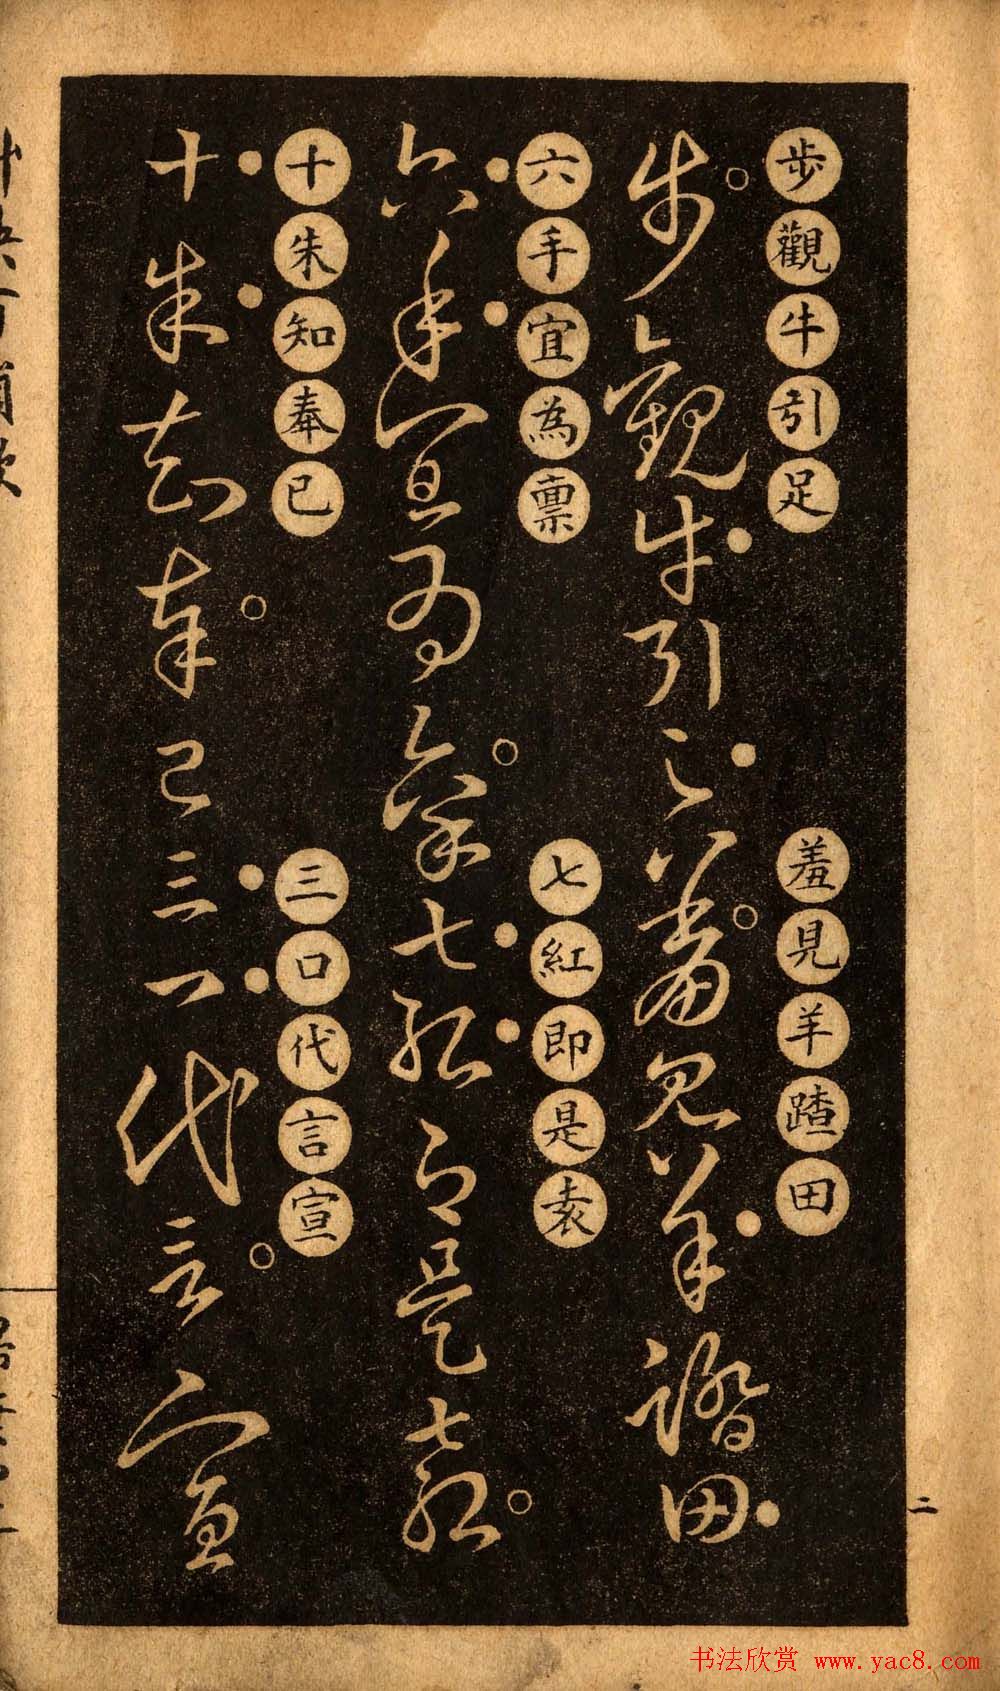 步觀牛引足
羞見羊蹅田
步觀牛引足羞見羊蹅田
六手宜為禀
七紅即是袁
六手宜為禀七紅即是袁
十朱知奉已
三口代言宣
十朱知奉已三口代言宣
二
书法欣赏 www.yac8.com